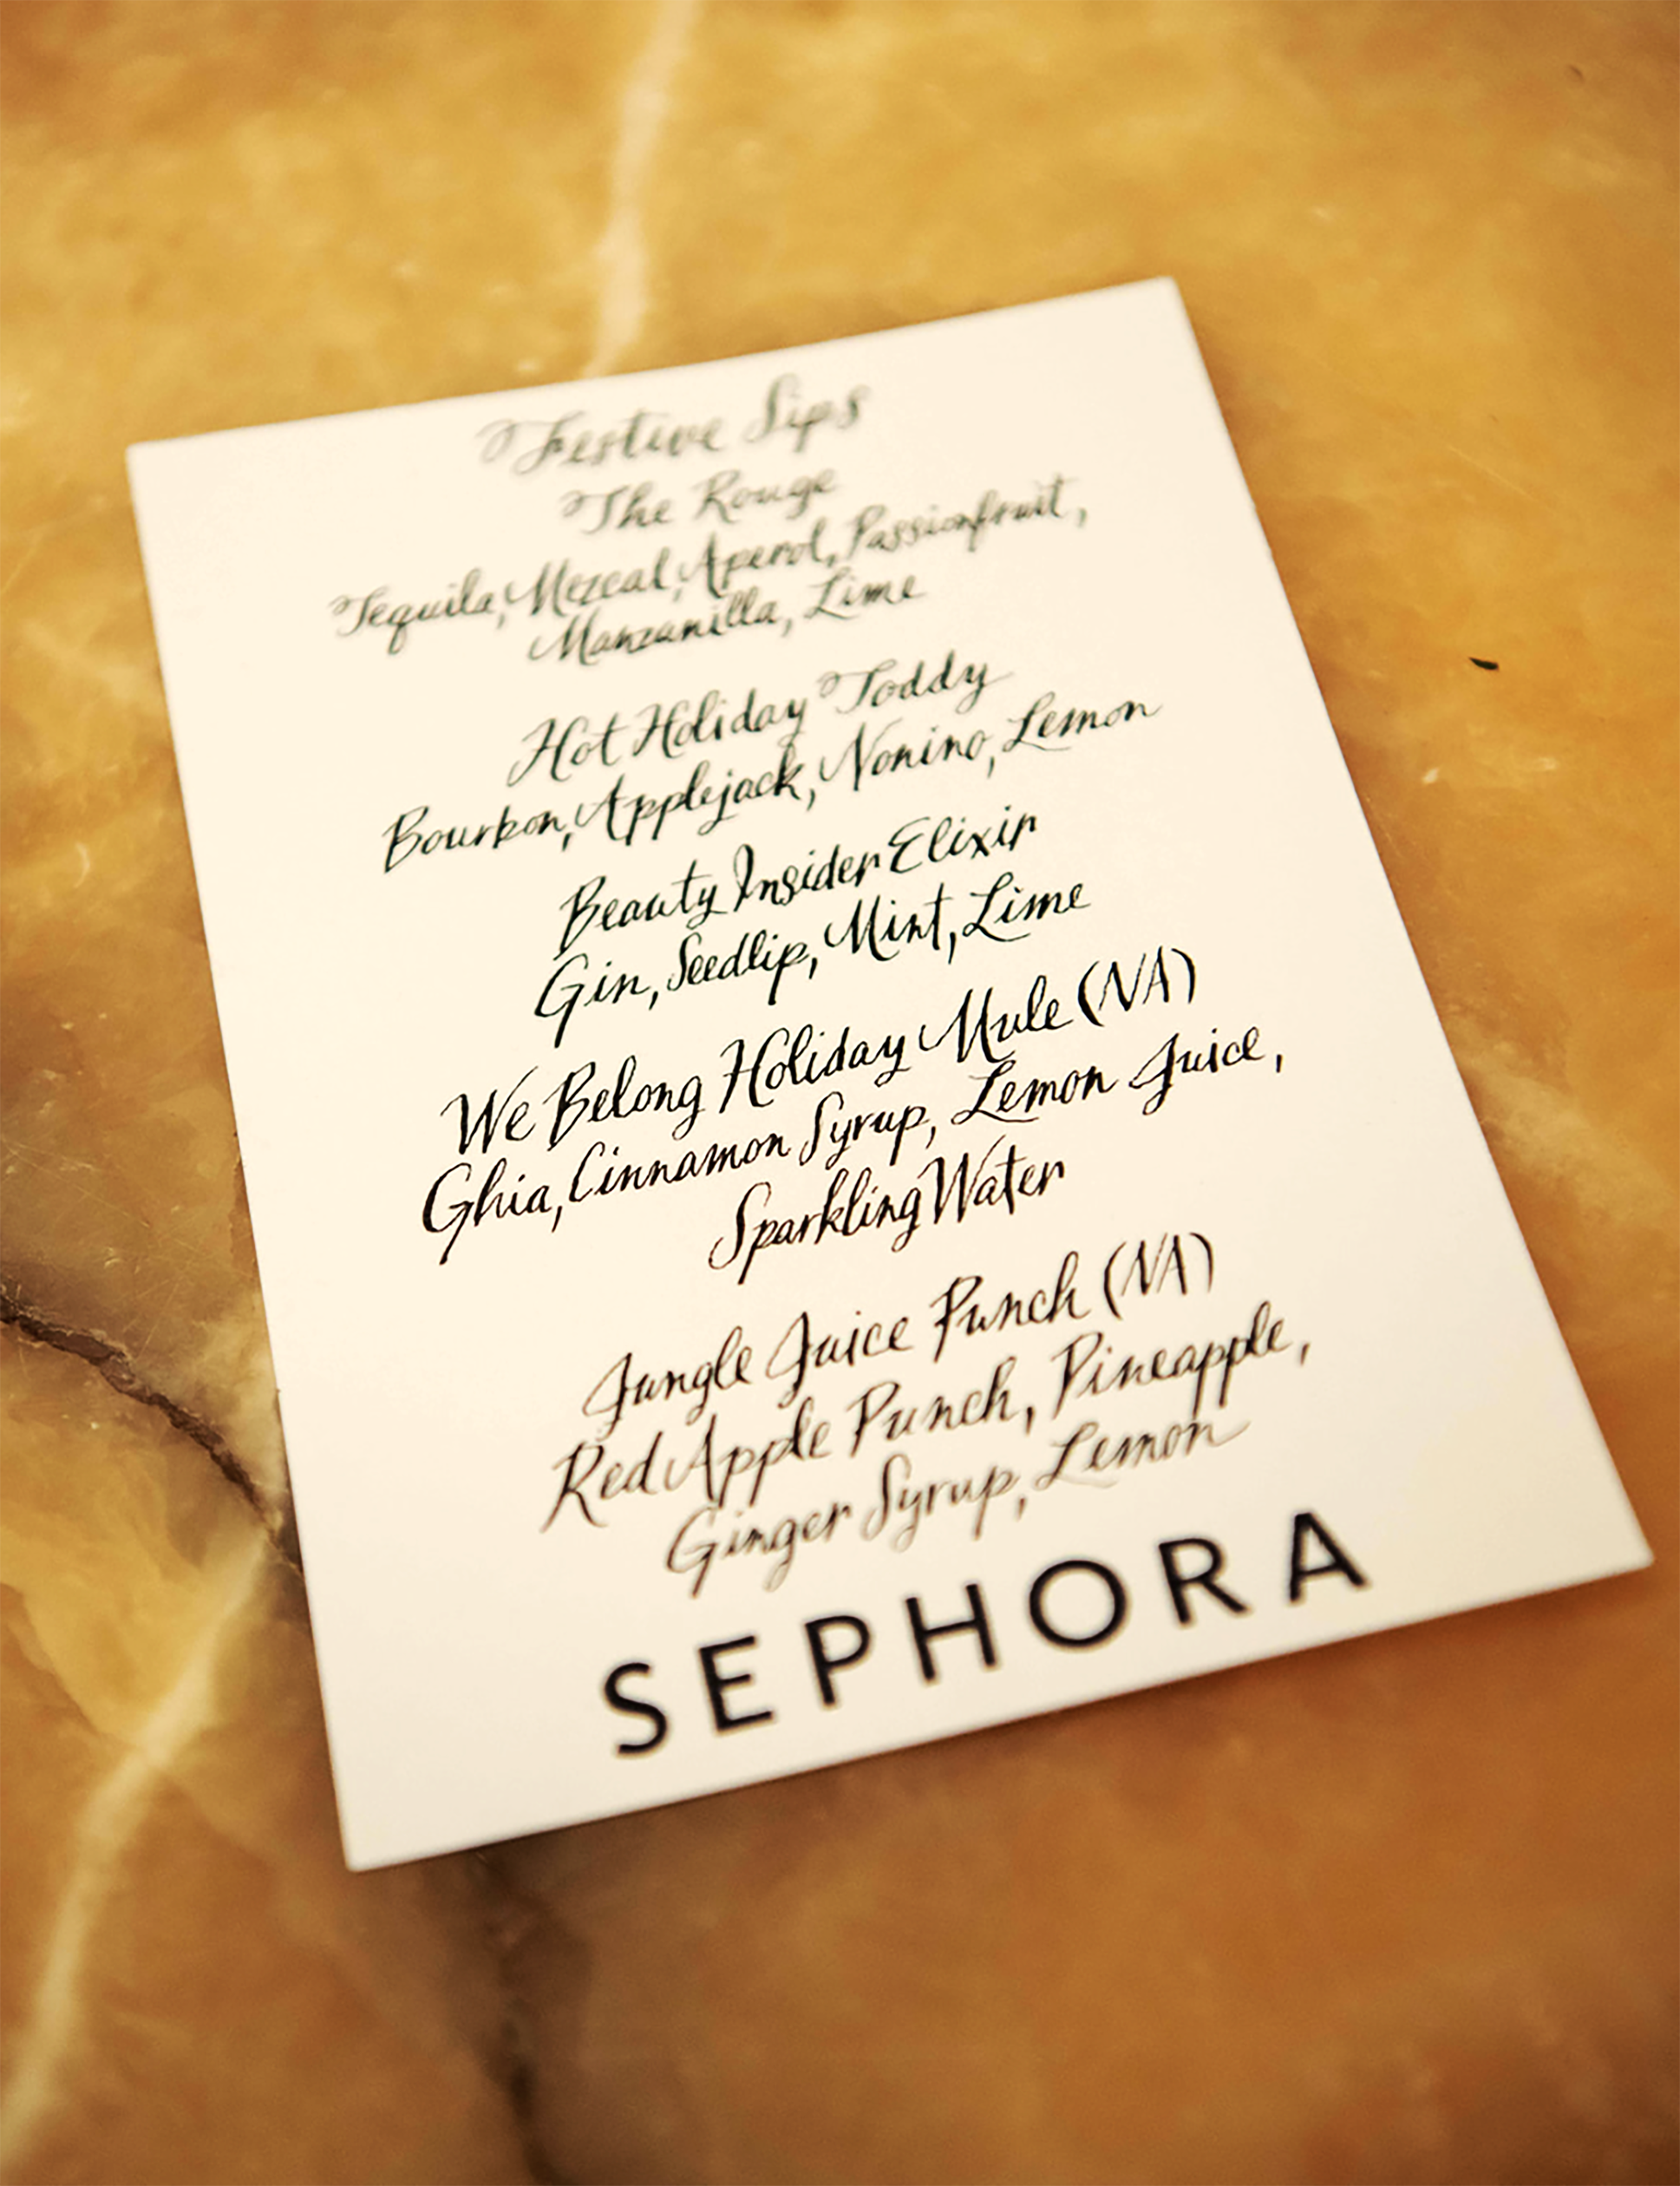 Festive Sips
The Rouge
Tequila, Mezcal, Aperol, Passionfruit,
Manzanilla, Lime
Hot Holiday Toddy
Bourbon, Applejack, Nonino, Lemon
Beauty Insider Elixir
Gin, Seedlip, Mint, Lime
We Belong Holiday Mule (NA)
Ghia, Cinnamon Syrup, Lemon Juice,
Sparkling Water
Jungle Juice Punch (NA)
Red Apple Punch, Pineapple,
Ginger Syrup, Lemon
SEPHORA